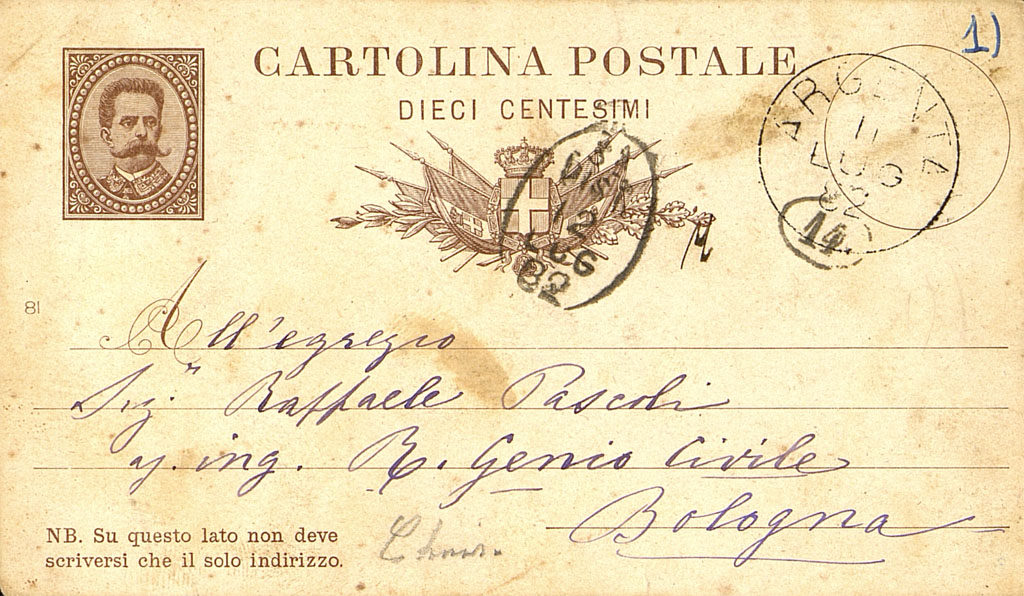 1)
CARTOLINA POSTALE
DIECI CENTESIMI
ARGENTA
11
LUG
82
14
12
LUG
82
81
All'egregio
Sig.r Raffaele Pascoli
ing. R. Genio Civile
Bologna
NB. Su questo lato non deve
scriversi che il solo indirizzo.